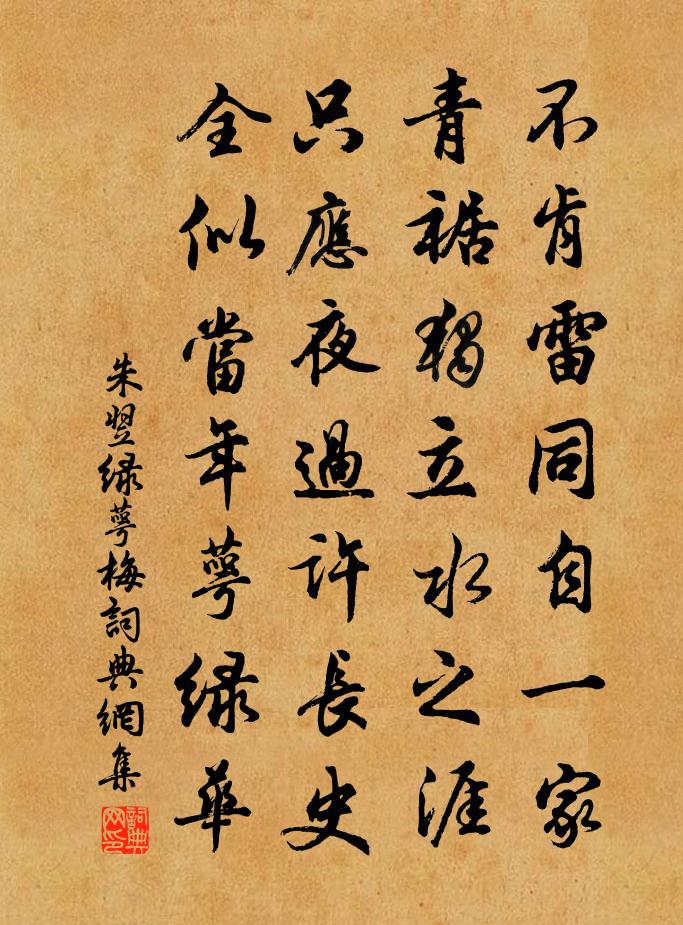 不肯雷同自一家
青裾獨立水之涯
只應夜過許長史
全似當年萼緑華
朱翌緑萼梅詞典網集
詞典网印